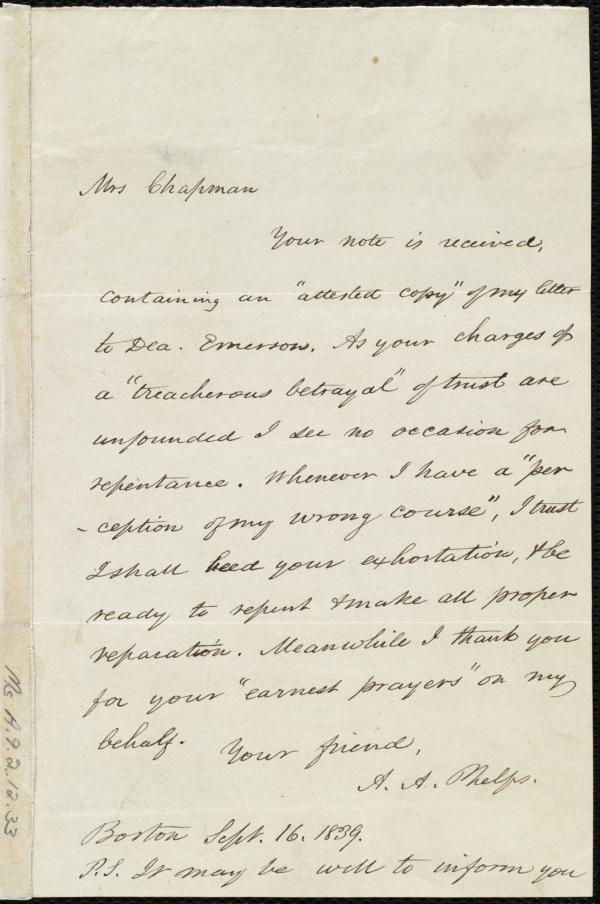 Mrs Chapman
Your note is received,
containing an "attested copy" of my letter
to Dea. Emerson. As your charges of
a "treacherous betrayal" of trust are
unfounded I see no occasion for
repentance. Whenever I have a "per
-ception of my wrong course", I trust
I shall heed your exhortation, & be
ready to repent & make all proper
reparation. Meanwhile I thank you
for your "earnest prayers" on my
behalf.
Your friend,
A. A. Phelps.
Boston Sept. 16. 1839.
P.S. It may be well to inform you
Ms A.9.2.12.33